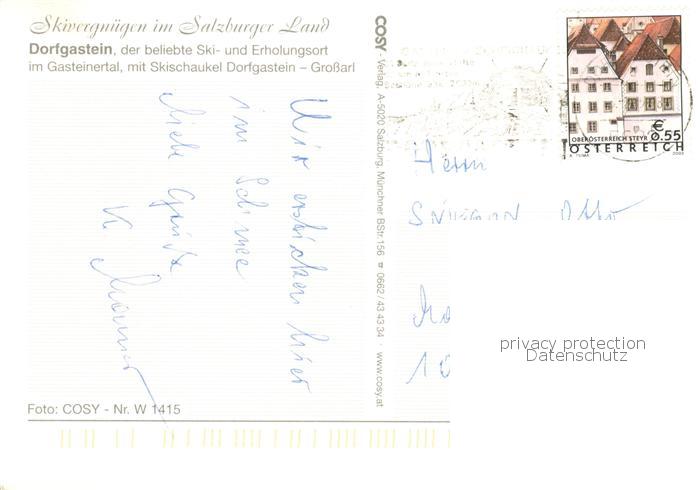 Skivergnügen im Salzburger Land
Dorfgastein, der beliebte Ski- und Erholungsort
im Gasteinertal, mit Skischaukel Dorfgastein – Großarl
Wir ersticken hier
im Schnee
Liebe Grüße
COSY - Verlag, A-5020 Salzburg, Münchner BStr.156 ☎ 0662/43 43 34 · www.cosy.at
€ 0.55
OBERÖSTERREICH STEYR
ÖSTERREICH
2003
Herrn
Otto
privacy protection
Datenschutz
Foto: COSY - Nr. W 1415